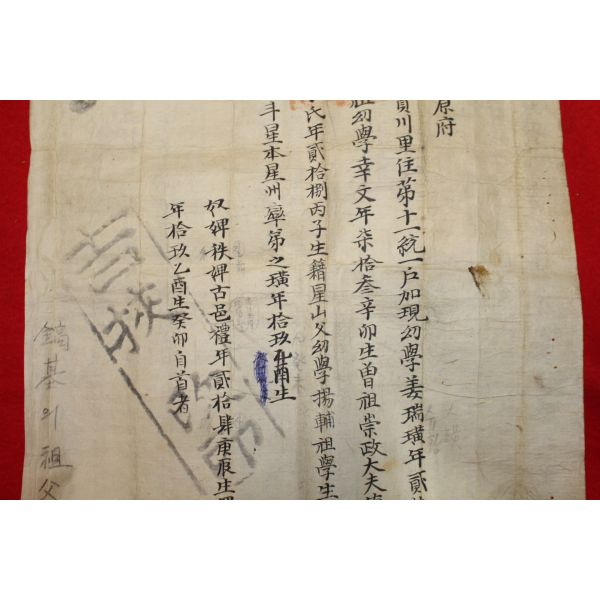 原府
川里住第十一統一戶加現幼學姜瑞璜年貳
祖幼學幸文年柒拾叁辛卯生曾祖崇政大夫
氏年貳拾捌丙子生籍星山父幼學揚輔祖學生
斗星本星州率第之璜年拾玖乙酉生
奴婢秩婢古邑禮年貳拾肆庚辰生
年拾玖乙酉生癸卯自首者
鎬基의祖父